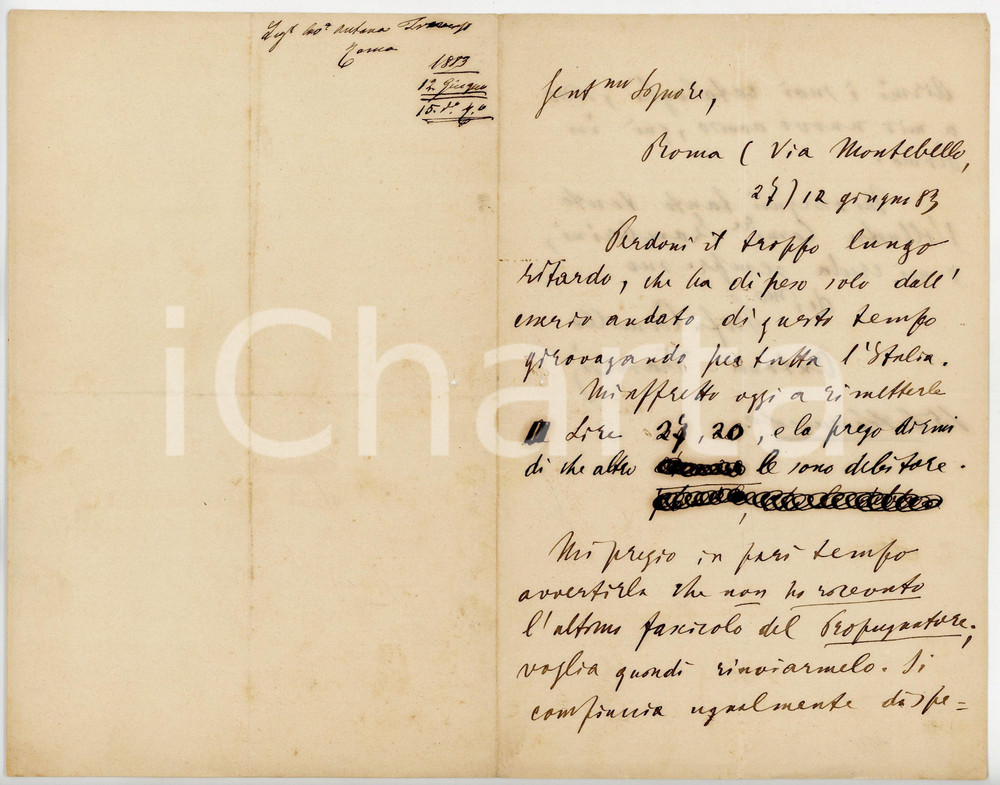 Roma
1883
12 Giugno
15. do
Gentmo Signore,
Roma (Via Montebello,
27) 12 giugno 83
Perdoni il troppo lungo
ritardo, che ha dipeso solo dall'
essere andato di questo tempo
girovagando per tutta l'Italia.
Mi affretto oggi a rimetterle
Lire 27,20, e la prego dirmi
di che altro le sono debitore.
Mi pregio in pari tempo
avvertirla che non ho ricevuto
l'ultimo fascicolo del Propugnatore;
voglia quindi rinviarmelo. Si
compiaccia ugualmente di spe=
iCharta